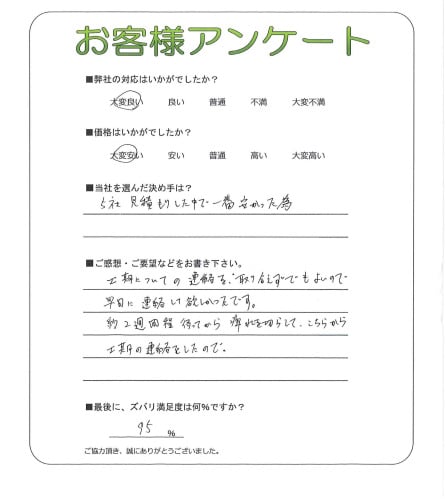 お客様アンケート
■弊社の対応はいかがでしたか？
大変良い 良い 普通 不満 大変不満
■価格はいかがでしたか？
大変安い 安い 普通 高い 大変高い
■当社を選んだ決め手は？
5社 見積もりした中で一番安かった為
■ご感想・ご要望などをお書き下さい。
工期についての連絡を、取り合えずでもよいので
早目に連絡して欲しかったです。
約2週間程待ってから 痺れを切らして、こちらから
工期の連絡をしたので。
■最後に、ズバリ満足度は何％ですか？
95 ％
ご協力頂き、誠にありがとうございました。